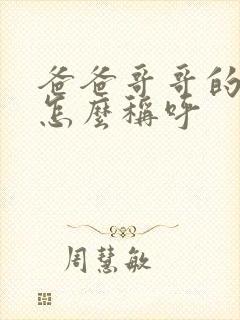 爸爸哥哥的
怎麼稱呼
周慧敏